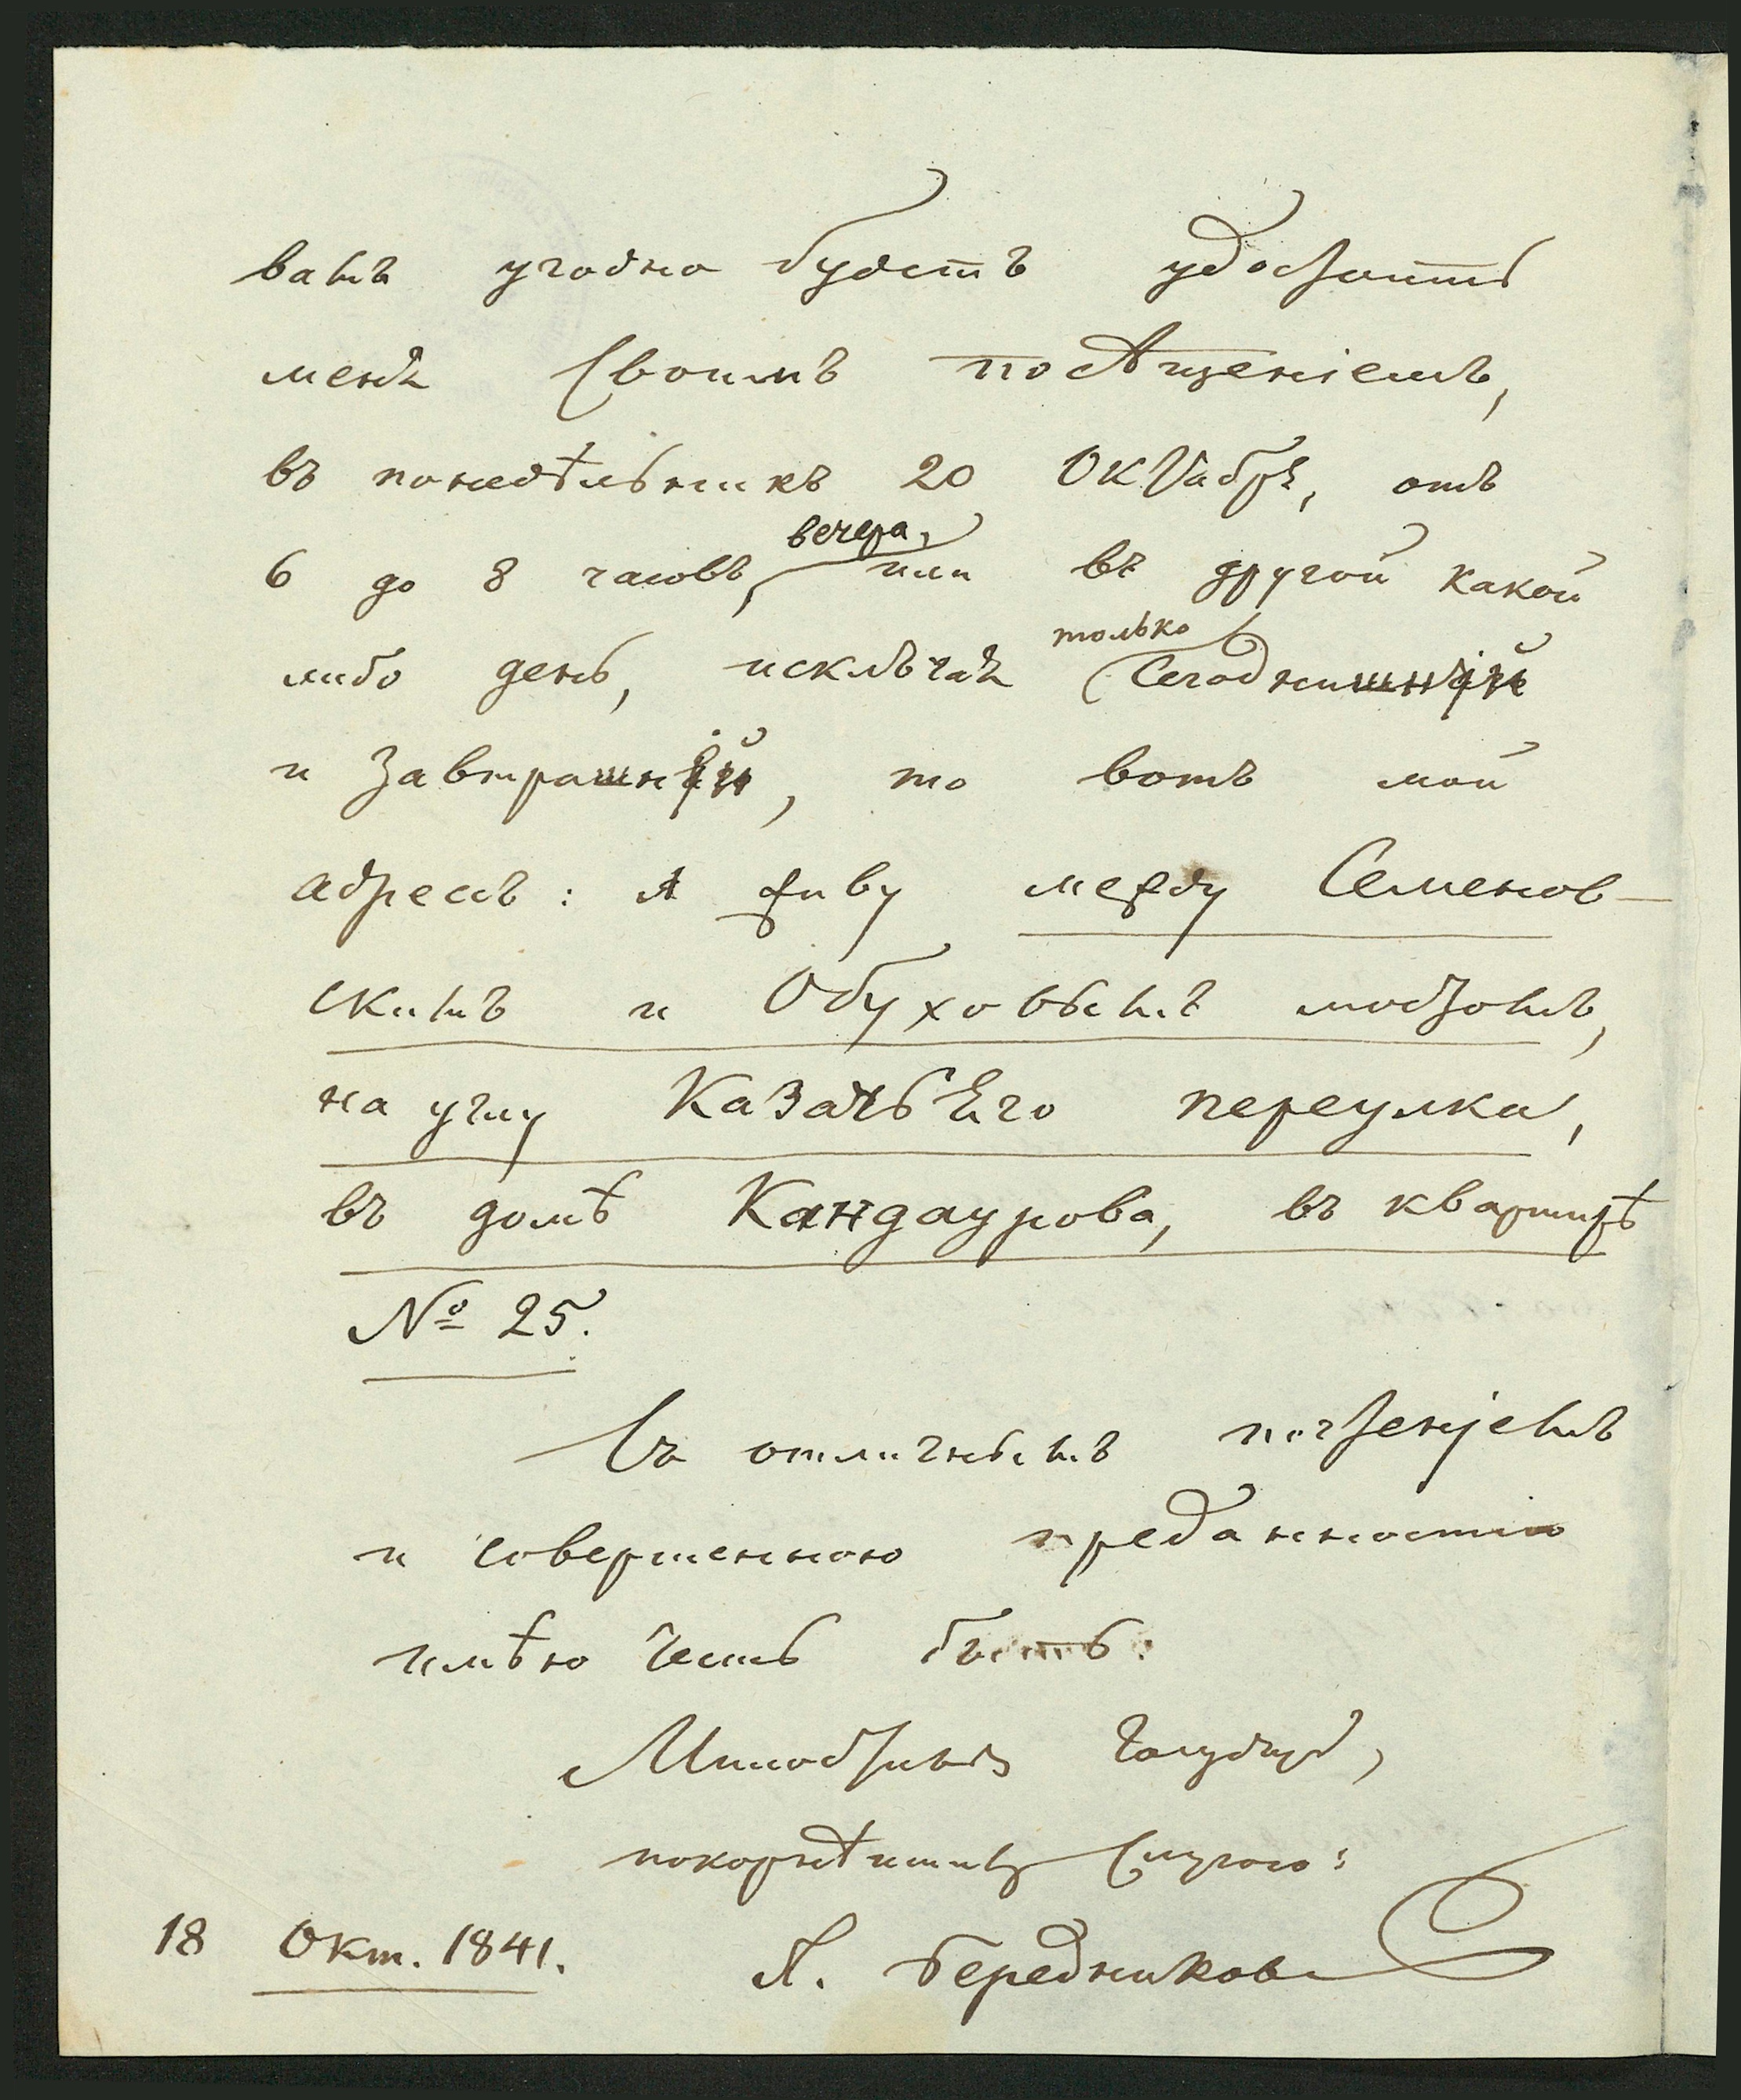 вамъ угодно будетъ удостоить
меня своимъ посѣщеніемъ,
въ понедѣльникъ 20 Октября, отъ
6 до 8 часовъ, вечера, или въ другой какой
либо день, исключая только сегоднишній
и завтрашній, то вотъ мой
адресъ: я живу между Семенов-
скимъ и Обуховымъ мостомъ,
на углу Казачьяго переулка,
въ домѣ Кандаурова, въ квартирѣ
№ 25.
Съ отличнымъ почтеніемъ
и совершенною преданностію
имѣю честь быть:
Милостивый Государь,
покорнѣйшимъ слугою:
18 Окт. 1841. Я. Бередниковъ